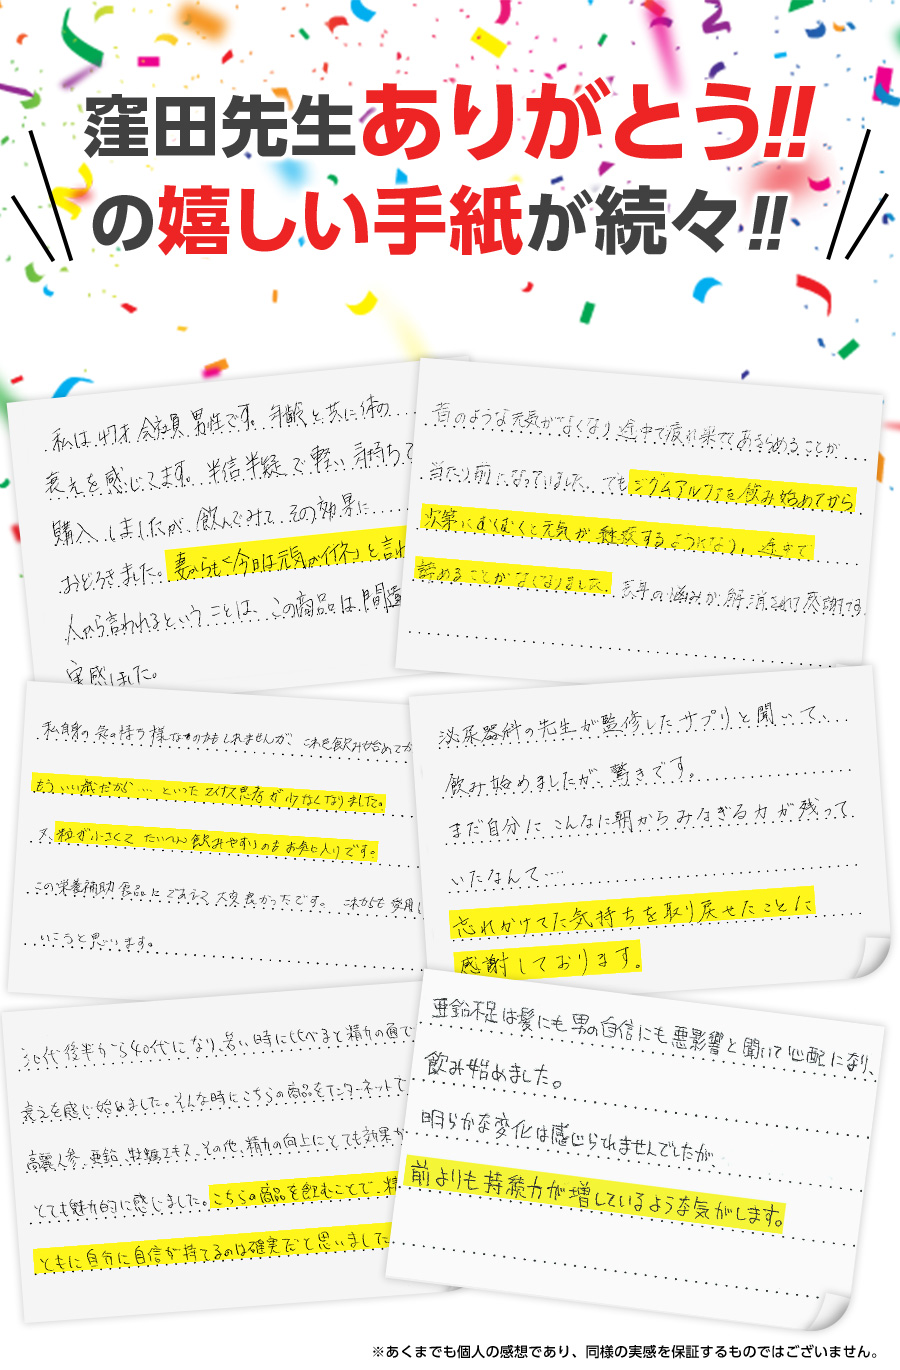 窪田先生ありがとう!!
の嬉しい手紙が続々!!
私は47才 会社員 男性です。年齢と共に体の
衰えを感じてます。半信半疑で軽い気持ちで
購入しましたが、飲んでみて、その効果に
おどろきました。妻からも「今日は元気がイイネ」と言わ
人から言われるということは、この商品は間違
実感しました。
昔のような元気がなくなり 途中で疲れ果ててあきらめることが
当たり前になっていました。でもジクムアルファを飲み始めてから
次第にむくむくと元気が継続するようになり、途中で
諦めることがなくなりました。長年の悩みが解消されて感謝です
私自身の気の持ち様なのかもしれませんが、これを飲み始めてか
もういい歳だから…といったマイナス思考が少なくなりました。
又、粒が小さくて たいへん飲みやすいのもお気に入りです。
この栄養補助食品にであえて大変良かったです。これからも愛用し
いこうと思います。
泌尿器科の先生が監修したサプリと聞いて、
飲み始めましたが、驚きです。
まだ自分に こんなに朝からみなぎる力が残って
いたなんて…
忘れかけてた気持ちを取り戻せたことに
感謝しております。
30代後半から40代になり、若い時に比べると精力の面で
衰えを感じ始めました。そんな時にこちらの商品をインターネットで
高麗人参、亜鉛、牡蠣エキス、その他、精力の向上にとても効果が
とても魅力的に感じました。こちらの商品を飲むことで、精
ともに自分に自信が持てるのは確実だと思いました
亜鉛不足は髪にも男の自信にも悪影響と聞いて心配になり、
飲み始めました。
明らかな変化は感じられませんでしたが、
前よりも持続力が増しているような気がします。
※あくまでも個人の感想であり、同様の実感を保証するものではございません。